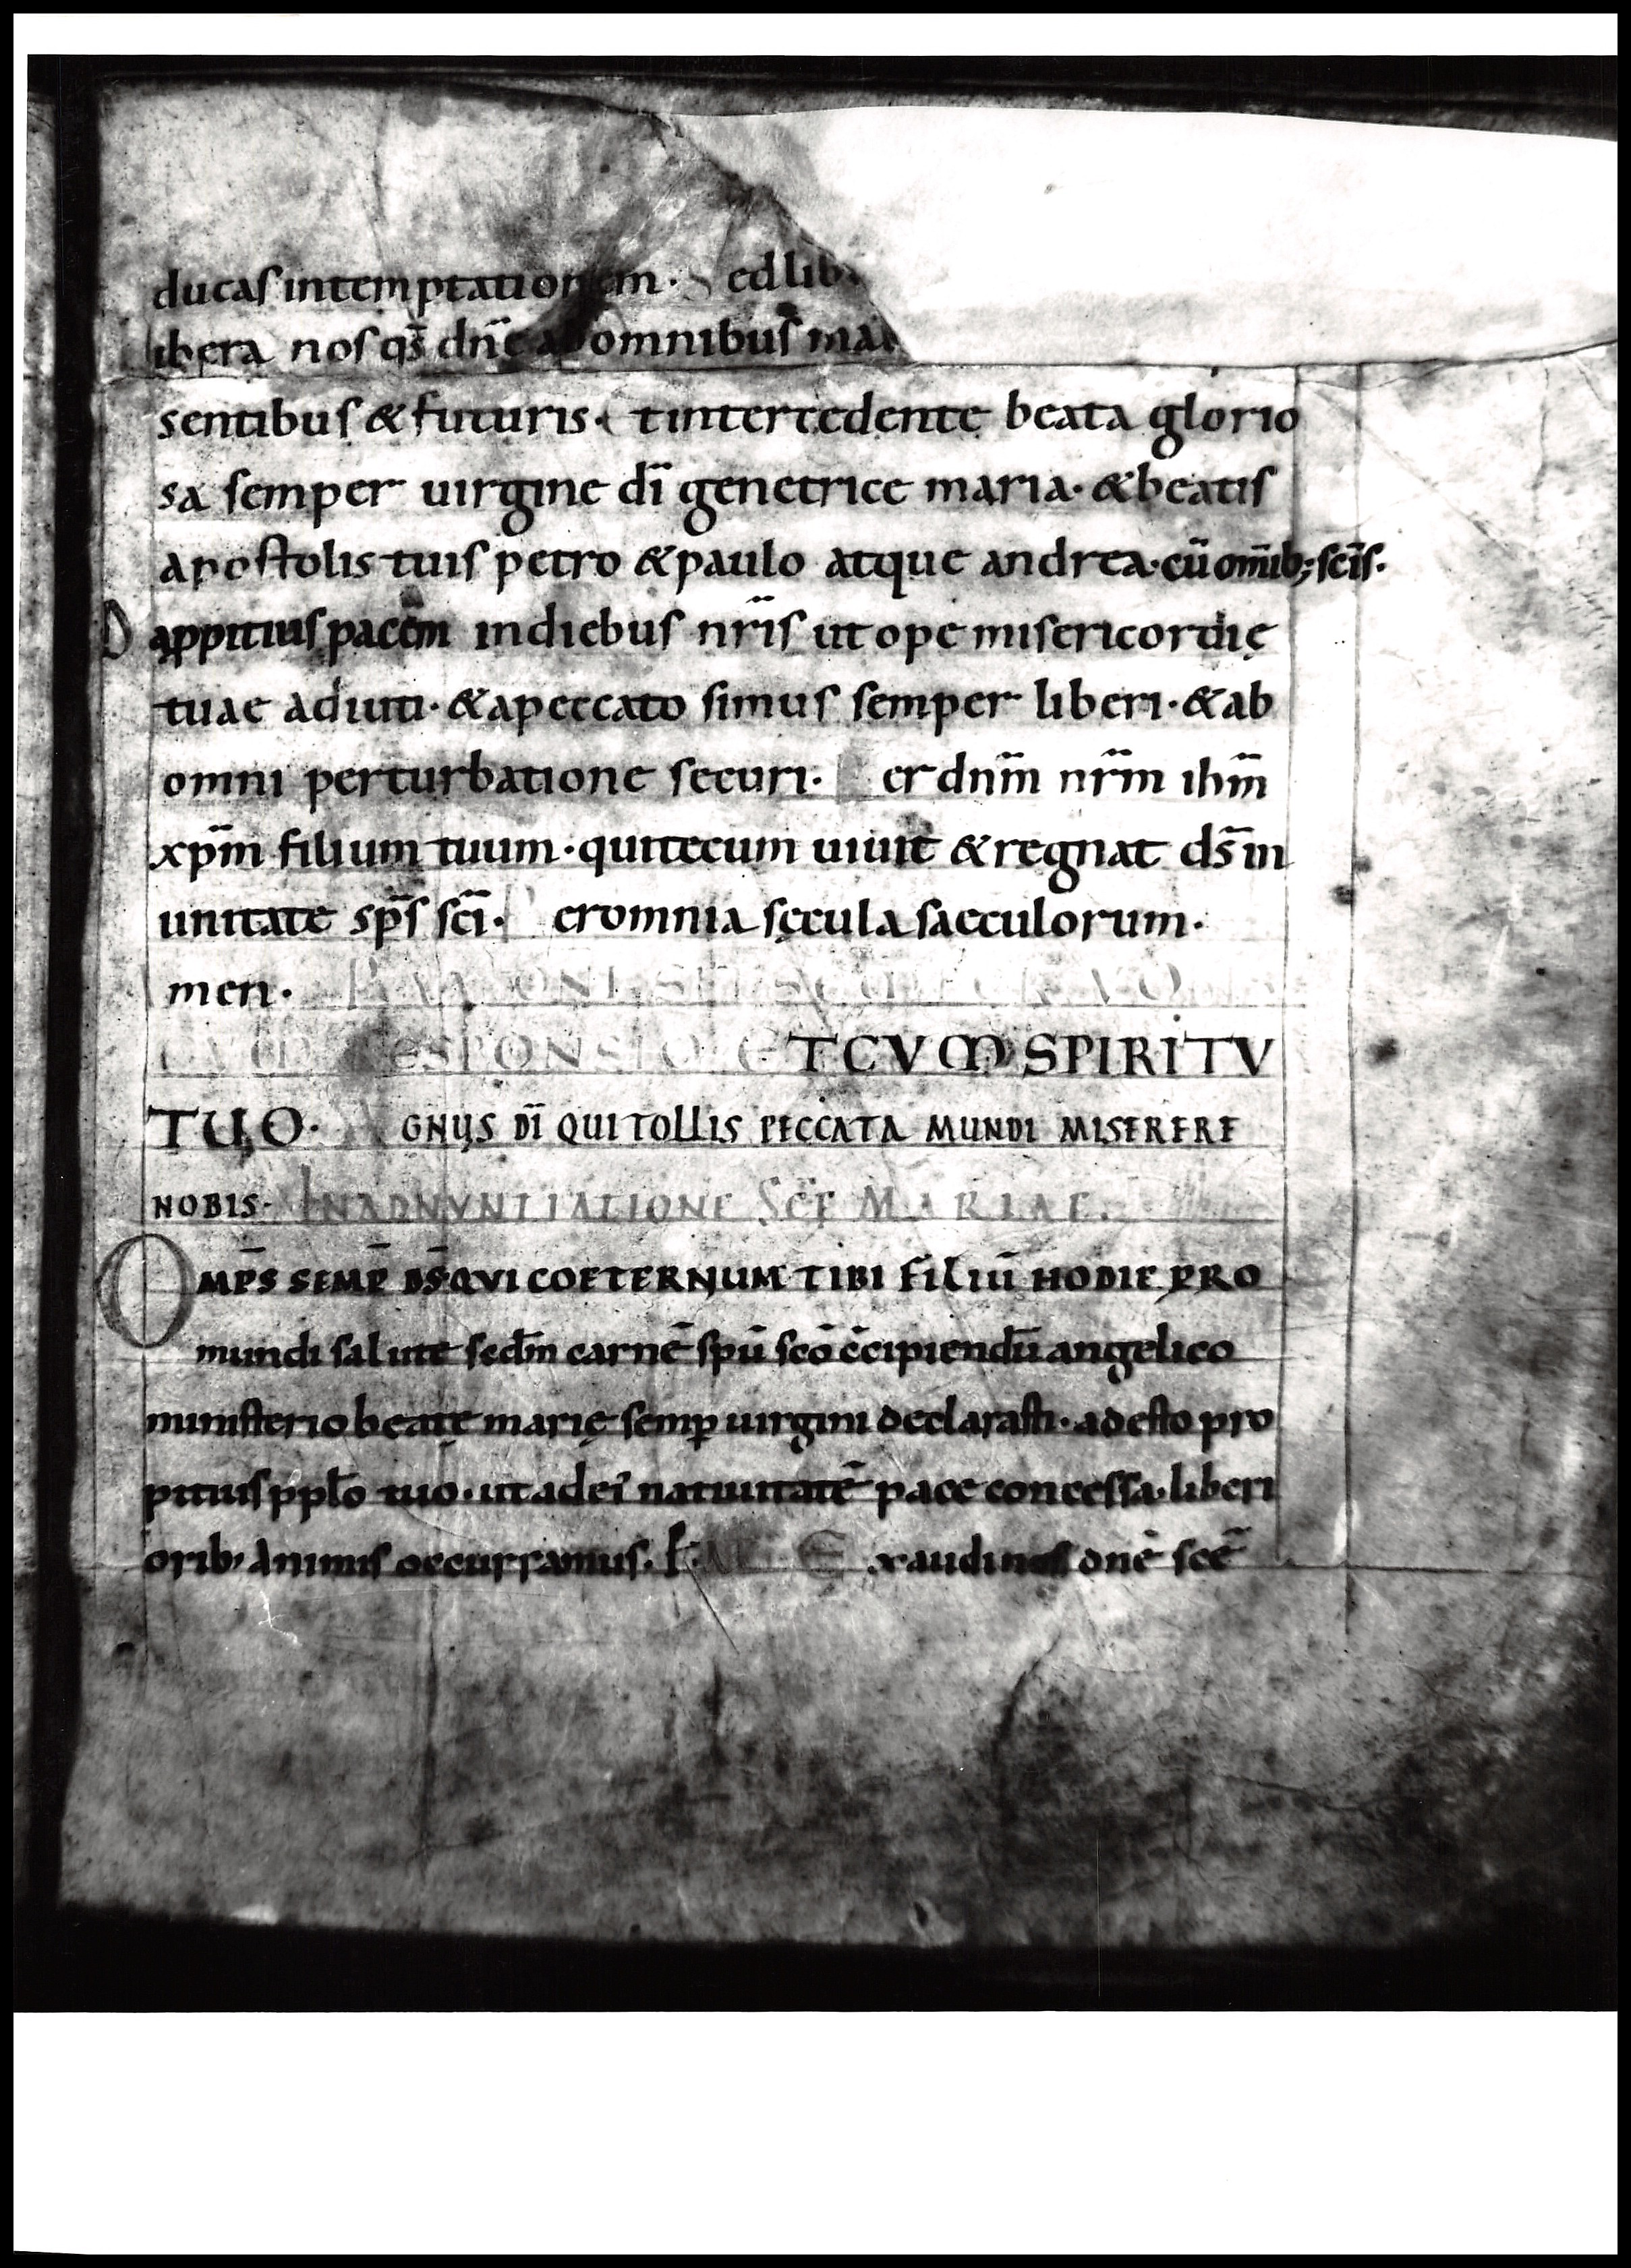 ducas intemptationem· S ed lib
ibera nos q̄s dn̄e ab omnibus ma
sentibus & futuris· & intercedente beata glorio
sa semper uirgine dī genetrice maria· & beatis
apostolis tuis petro & paulo atque andrea· cū om̄ib; sc̄is·
D a ppitius pacem in diebus nr̄is ut ope misericordię
tuae adiuti· & a peccato simus semper liberi· & ab
omni perturbatione securi· P er dnm̄ nrm̄ ihm̄
xpm̄ filium tuum· qui tecum uiuit & regnat ds̄ in
unitate sp̄s sc̄i· P er omnia sęcula saeculorum·
men· PAX DNI SIT SEMPER VO
CUM RESPONSIO ET CUM SPIRITU
TUO· A GNUS DĪ QUI TOLLIS PECCATA MUNDI MISERERE
NOBIS· IN ADNUNTIATIONE SC̄E MARIAE.
OMP̄S SEMP̄ DS̄ QVI COETERNUM TIBI FILIŪ HODIE PRO
mundi salute secdm̄ carnē spū scō c̄cipiendū angelico
ministerio beatę marię semp uirgini declarasti· adesto pro
pitius ppl̄o tuo· ut ad ei natiuitatē pace concessa· liberi
orib; animis occurramus· P. E xaudi nos dnē scē